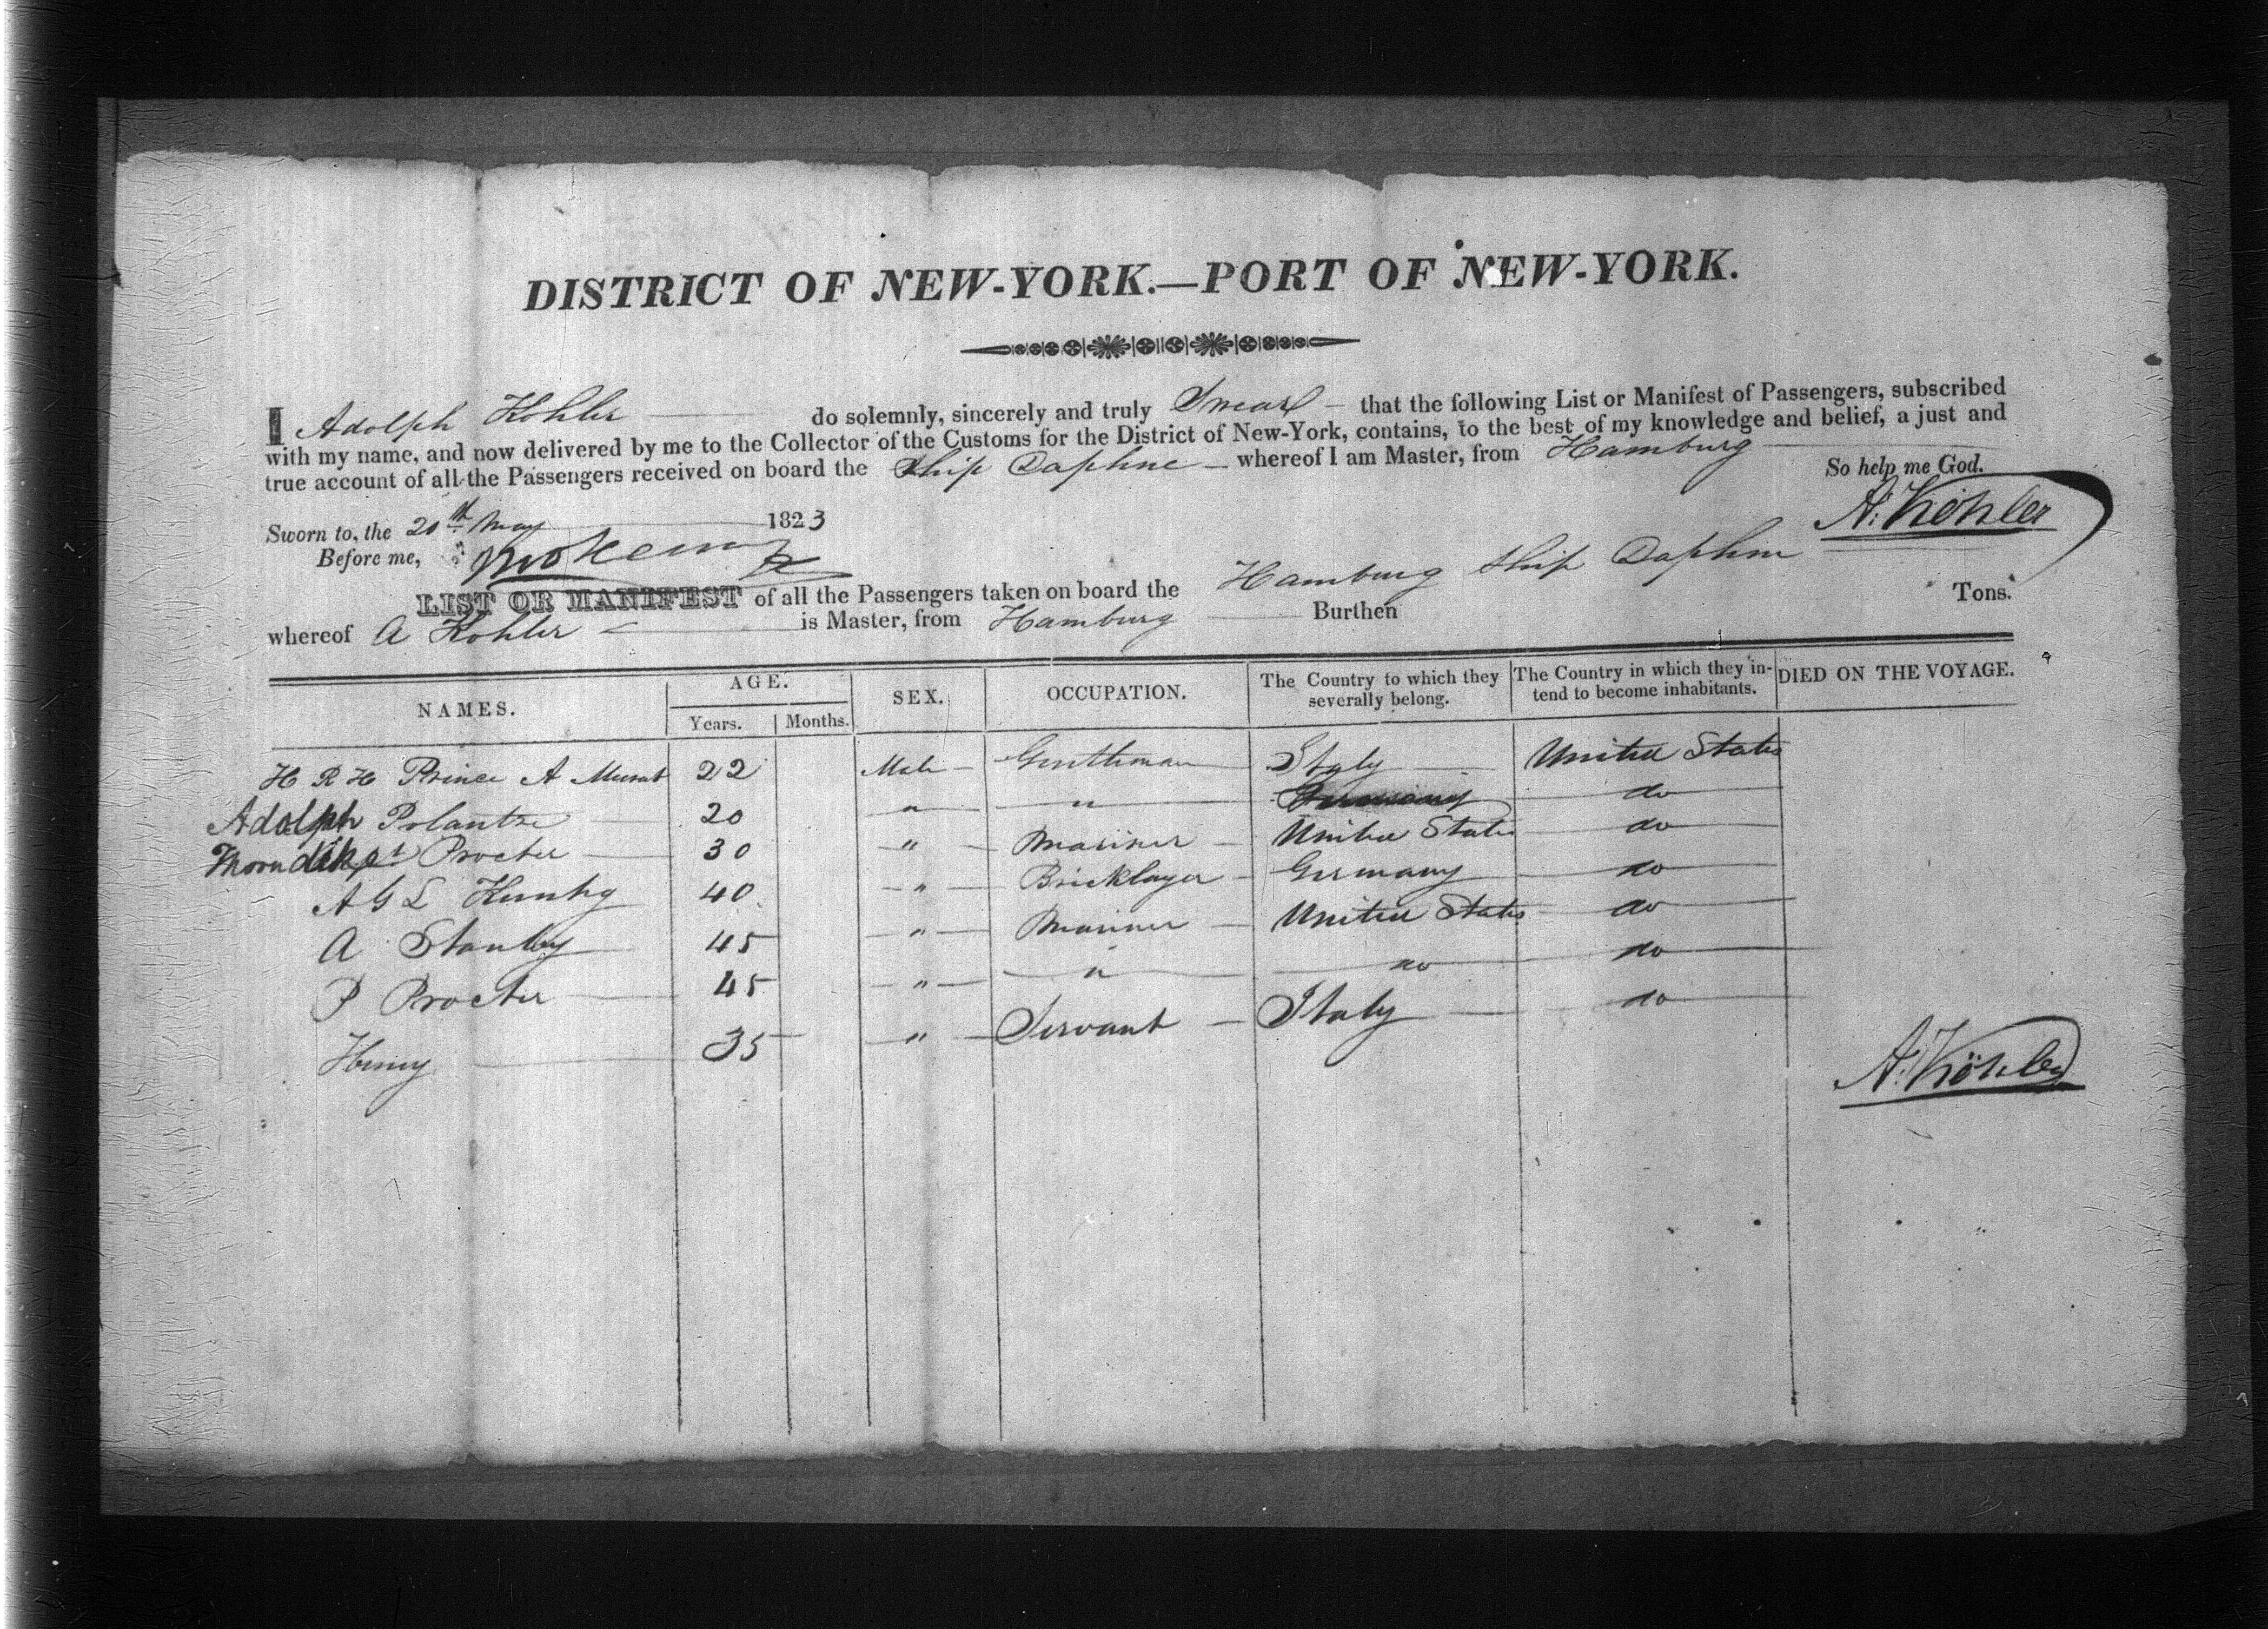 DISTRICT OF NEW-YORK.—PORT OF NEW-YORK.
I Adolph Kohler do solemnly, sincerely and truly Swear – that the following List or Manifest of Passengers, subscribed
with my name, and now delivered by me to the Collector of the Customs for the District of New-York, contains, to the best of my knowledge and belief, a just and
true account of all the Passengers received on board the Ship Daphne – whereof I am Master, from Hamburg
So help me God.
Sworn to, the 20th May 1823
A. Köhler
Before me,
LIST OR MANIFEST of all the Passengers taken on board the Hamburg Ship Daphne
whereof A Kohler is Master, from Hamburg Burthen Tons.
NAMES. AGE. SEX. OCCUPATION. The Country to which they severally belong. The Country in which they intend to become inhabitants. DIED ON THE VOYAGE.
Years. Months.
H R H Prince A Murat 22 Male Gentleman Italy United States
Adolph 20 " " Germany do
Thorndike Procter 30 " Mariner United States do
A G L 40 " Bricklayer Germany do
A Stanley 45 " Mariner United States do
P Procter 45 " " do do
Henry 35 " Servant Italy do
A. Köhler